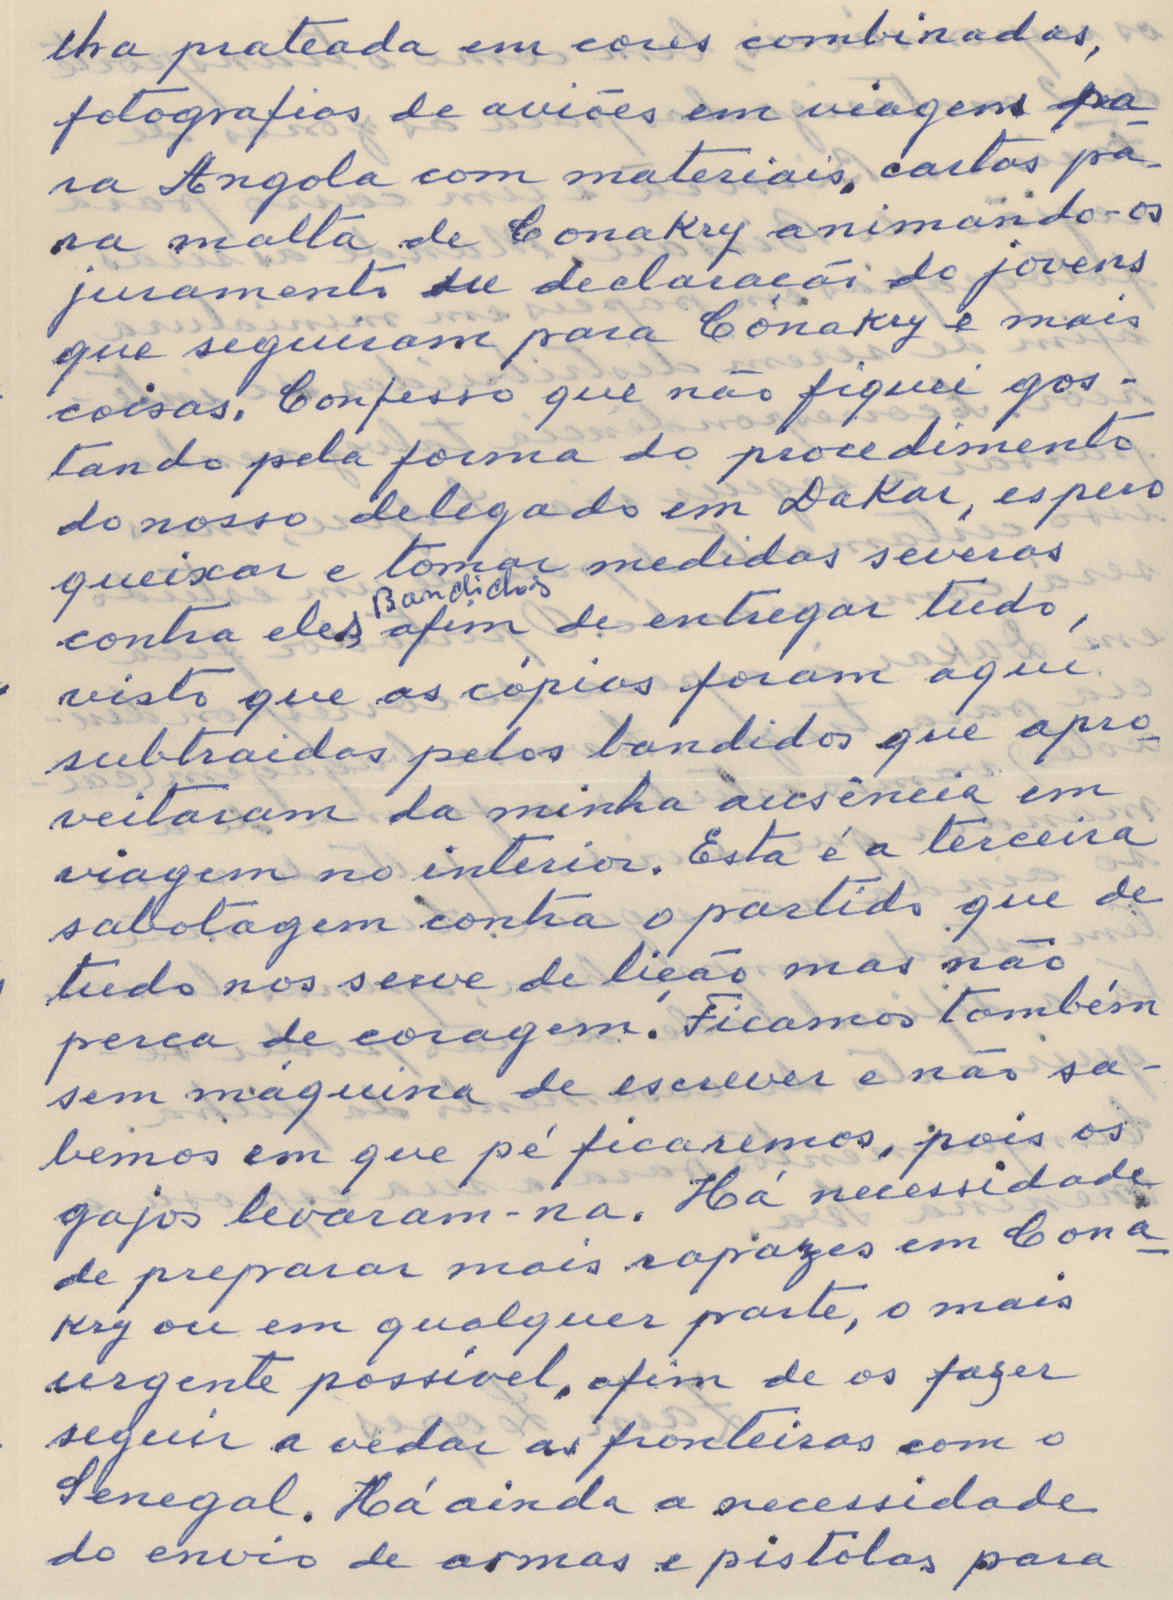 lha prateada em cores combinadas,
fotografias de aviões em viagens pa-
ra Angola com materiais, cartas pa-
ra malta de Conakry animando-os
juramento ou declaração do jovens
que seguiram para Conakry e mais
coisas. Confesso que não fiquei gos-
tando pela forma do procedimento
do nosso delegado em Dakar, espero
queixar e tomar medidas severas
Bandidos
contra eles afim de entregar tudo,
visto que as cópias foram aqui
subtraidas pelos bandidos que apro-
veitaram da minha ausência em
viagem no interior. Esta é a terceira
sabotagem contra o partido que de
tudo nos serve de lição mas não
perca de coragem. Ficamos também
sem máquina de escrever e não sa-
bemos em que pé ficaremos, pois os
gajos levaram-na. Há necessidade
de preparar mais rapazes em Cona-
kry ou em qualquer parte, o mais
urgente possivel, afim de os fazer
seguir a vedar as fronteiras com o
Senegal. Há ainda a necessidade
do envio de armas e pistolas para